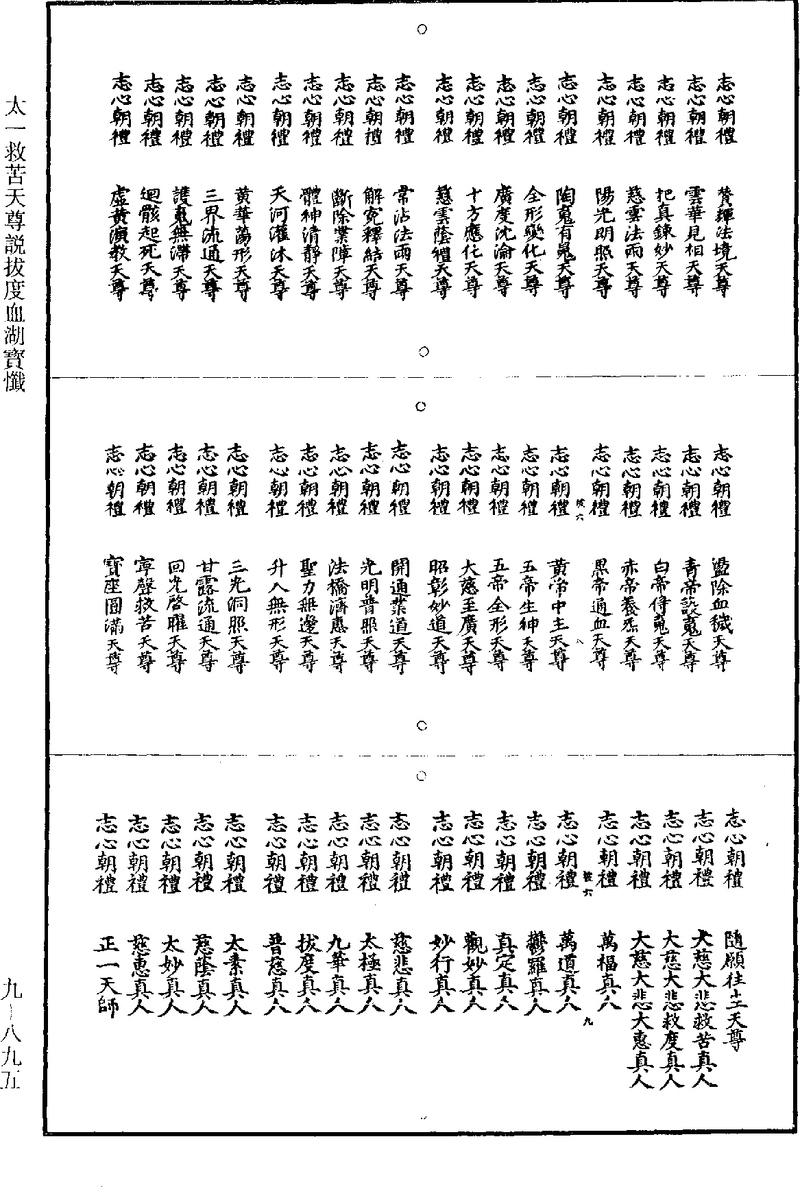 太一救苦天尊説拔度血湖寶懺
志心朝禮 贊輝法境天尊
志心朝禮 雲華見相天尊
志心朝禮 把真鍊妙天尊
志心朝禮 慈雲法雨天尊
志心朝禮 陽光明照天尊
志心朝禮 陶䰟有晃天尊
志心朝禮 全形變化天尊
志心朝禮 廣度沈淪天尊
志心朝禮 十方應化天尊
志心朝禮 慈雲蔭禮天尊
志心朝禮 常沾法雨天尊
志心朝禮 解寃釋結天尊
志心朝禮 斷除業障天尊
志心朝禮 體神清静天尊
志心朝禮 天河灌沐天尊
志心朝禮 黄華蕩形天尊
志心朝禮 三界流通天尊
志心朝禮 護䰟無滞天尊
志心朝禮 迴骸起死天尊
志心朝禮 虛黄演教天尊
志心朝禮 盪除血穢天尊
志心朝禮 青帝護䰟天尊
志心朝禮 白帝侍䰟天尊
志心朝禮 赤帝養炁天尊
志心朝禮 黑帝通血天尊
志心朝禮 黄帝中主天尊
志心朝禮 五帝生神天尊
志心朝禮 五帝全形天尊
志心朝禮 大慈至廣天尊
志心朝禮 昭彰妙道天尊
志心朝禮 開通業道天尊
志心朝禮 光明普照天尊
志心朝禮 法橋濟惠天尊
志心朝禮 聖力無邊天尊
志心朝禮 升入無形天尊
志心朝禮 三光洞照天尊
志心朝禮 甘露流通天尊
志心朝禮 回光啓曜天尊
志心朝禮 尋聲救苦天尊
志心朝禮 寶座圓滿天尊
志心朝禮 隨願往生天尊
志心朝禮 大慈大悲救苦真人
志心朝禮 大慈大悲救度真人
志心朝禮 大慈大悲大惠真人
志心朝禮 萬福真人
志心朝禮 萬道真人
志心朝禮 鬱羅真人
志心朝禮 真定真人
志心朝禮 觀妙真人
志心朝禮 妙行真人
志心朝禮 慈悲真人
志心朝禮 太極真人
志心朝禮 九華真人
志心朝禮 拔度真人
志心朝禮 普慈真人
志心朝禮 太素真人
志心朝禮 慈蔭真人
志心朝禮 太妙真人
志心朝禮 慈惠真人
志心朝禮 正一天師
九—八九五